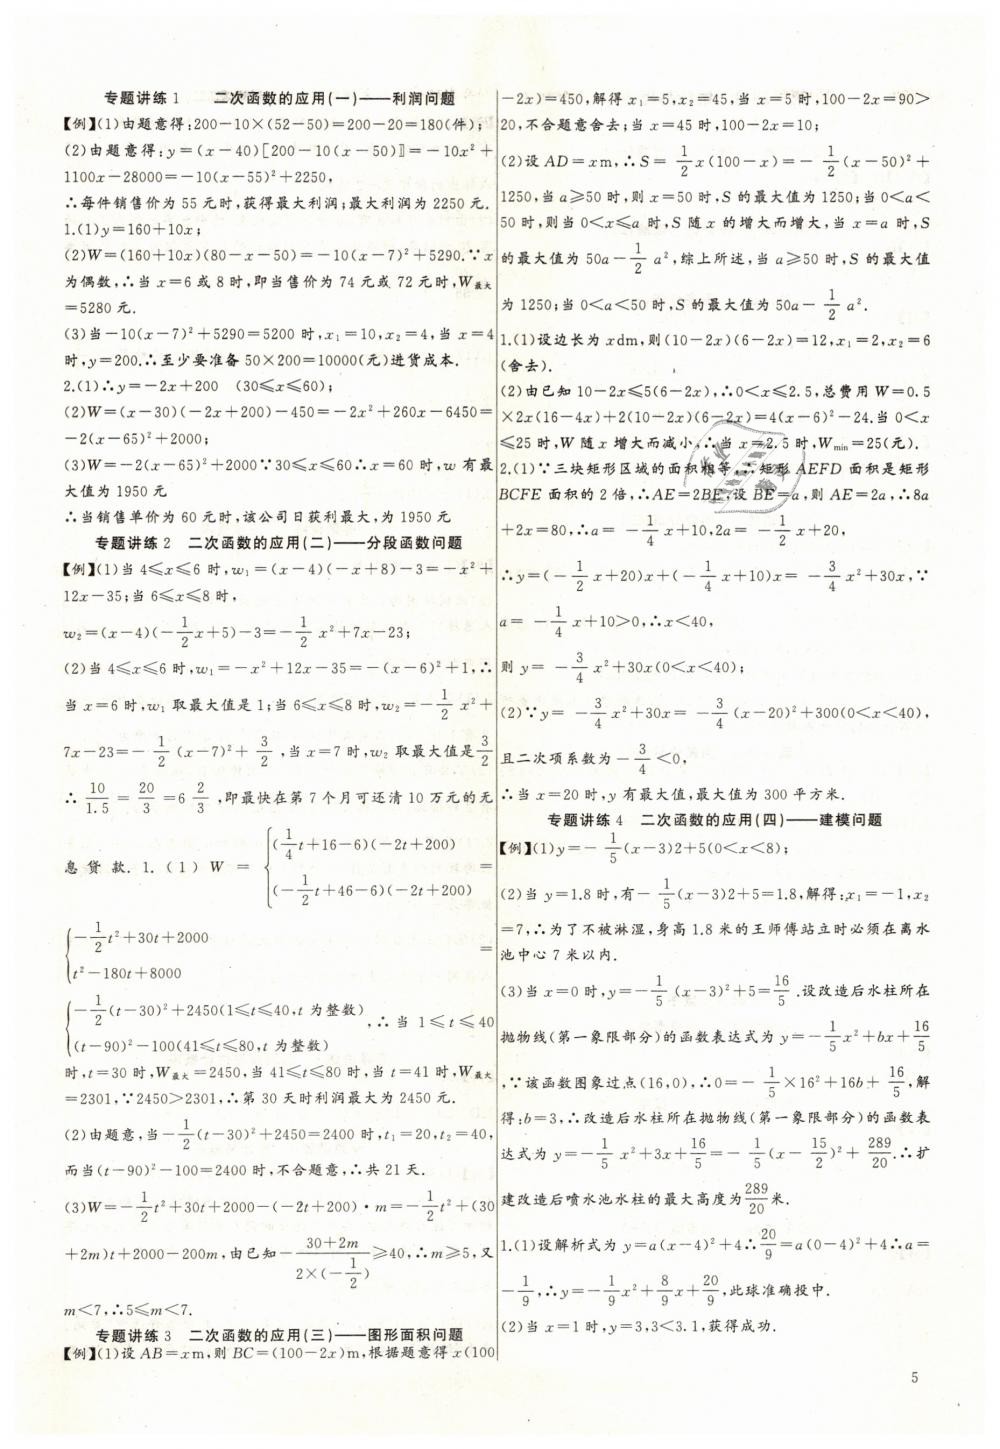 专题讲练 1　二次函数的应用(一)——利润问题
【例】(1)由题意得:200-10×(52-50)=200-20=180(件);
(2)由题意得:y=(x-40)[200-10(x-50)]=-10x²+
1100x-28000=-10(x-55)²+2250,
∴每件销售价为 55 元时,获得最大利润;最大利润为 2250 元.
1.(1)y=160+10x;
(2)W=(160+10x)(80-x-50)=-10(x-7)²+5290.∵x
为偶数,∴当 x=6 或 8 时,即当售价为 74 元或 72 元时,W最大
=5280 元.
(3)当-10(x-7)²+5290=5200 时,x₁=10,x₂=4,当 x=4
时,y=200.∴至少要准备 50×200=10000(元)进货成本.
2.(1)∴y=-2x+200　(30≤x≤60);
(2)W=(x-30)(-2x+200)-450=-2x²+260x-6450=
-2(x-65)²+2000;
(3)W=-2(x-65)²+2000∵30≤x≤60∴x=60 时,w 有最
大值为 1950 元
∴当销售单价为 60 元时,该公司日获利最大,为 1950 元
专题讲练 2　二次函数的应用(二)——分段函数问题
【例】(1)当 4≤x≤6 时,w₁=(x-4)(-x+8)-3=-x²+
12x-35;当 6≤x≤8 时,
w₂=(x-4)(-1/2x+5)-3=-1/2 x²+7x-23;
(2)当 4≤x≤6 时,w₁=-x²+12x-35=-(x-6)²+1,∴
当 x=6 时,w₁ 取最大值是 1;当 6≤x≤8 时,w₂=-1/2 x²+
7x-23=-1/2 (x-7)²+3/2,当 x=7 时,w₂ 取最大值是3/2
∴10/1.5=20/3=6 2/3,即最快在第 7 个月可还清 10 万元的无
息贷款.1.(1)W={(1/4t+16-6)(-2t+200) (-1/2t+46-6)(-2t+200)=
{-1/2t²+30t+2000 t²-180t+8000=
{-1/2(t-30)²+2450(1≤t≤40,t 为整数) (t-90)²-100(41≤t≤80,t 为整数),∴当 1≤t≤40
时,t=30 时,W最大=2450,当 41≤t≤80 时,当 t=41 时,W最大
=2301,∵2450>2301,∴第 30 天时利润最大为 2450 元.
(2)由题意,当-1/2(t-30)²+2450=2400 时,t₁=20,t₂=40,
而当(t-90)²-100=2400 时,不合题意,∴共 21 天.
(3)W=-1/2t²+30t+2000-(-2t+200)·m=-1/2t²+(30
+2m)t+2000-200m,由已知-(30+2m)/(2×(-1/2))≥40,∴m≥5,又
m<7,∴5≤m<7.
专题讲练 3　二次函数的应用(三)——图形面积问题
【例】(1)设 AB=xm,则 BC=(100-2x)m,根据题意得 x(100
-2x)=450,解得 x₁=5,x₂=45,当 x=5 时,100-2x=90>
20,不合题意舍去;当 x=45 时,100-2x=10;
(2)设 AD=xm,∴S=1/2x(100-x)=-1/2(x-50)²+
1250,当 a≥50 时,则 x=50 时,S 的最大值为 1250;当 0<a<
50 时,则当 0<x≤a 时,S 随 x 的增大而增大,当 x=a 时,S
的最大值为 50a-1/2 a²,综上所述,当 a≥50 时,S 的最大值
为 1250;当 0<a<50 时,S 的最大值为 50a-1/2 a².
1.(1)设边长为 xdm,则(10-2x)(6-2x)=12,x₁=2,x₂=6
(舍去).
(2)由已知 10-2x≤5(6-2x),∴0<x≤2.5,总费用 W=0.5
×2x(16-4x)+2(10-2x)(6-2x)=4(x-6)²-24.当 0<x
≤25 时,W 随 x 增大而减小,∴当 x=2.5 时,Wmin=25(元).
2.(1)∵三块矩形区域的面积相等,∴矩形 AEFD 面积是矩形
BCFE 面积的 2 倍,∴AE=2BE,设 BE=a,则 AE=2a,∴8a
+2x=80,∴a=-1/4x+10,2a=-1/2x+20,
∴y=(-1/2x+20)x+(-1/4x+10)x=-3/4x²+30x,∵
a=-1/4x+10>0,∴x<40,
则 y=-3/4x²+30x(0<x<40);
(2)∵y=-3/4x²+30x=-3/4(x-20)²+300(0<x<40),
且二次项系数为-3/4<0,
∴当 x=20 时,y 有最大值,最大值为 300 平方米.
专题讲练 4　二次函数的应用(四)——建模问题
【例】(1)y=-1/5(x-3)2+5(0<x<8);
(2)当 y=1.8 时,有-1/5(x-3)2+5=1.8,解得:x₁=-1,x₂
=7,∴为了不被淋湿,身高 1.8 米的王师傅站立时必须在离水
池中心 7 米以内.
(3)当 x=0 时,y=-1/5(x-3)²+5=16/5.设改造后水柱所在
抛物线(第一象限部分)的函数表达式为 y=-1/5x²+bx+16/5
,∵该函数图象过点(16,0),∴0=-1/5×16²+16b+16/5,解
得:b=3,∴改造后水柱所在抛物线(第一象限部分)的函数表
达式为 y=-1/5x²+3x+16/5=-1/5(x-15/2)²+289/20.∴扩
建改造后喷水池水柱的最大高度为289/20米.
1.(1)设解析式为 y=a(x-4)²+4∴20/9=a(0-4)²+4∴a=
-1/9,∴y=-1/9x²+8/9x+20/9,此球准确投中.
(2)当 x=1 时,y=3,3<3.1,获得成功.
5